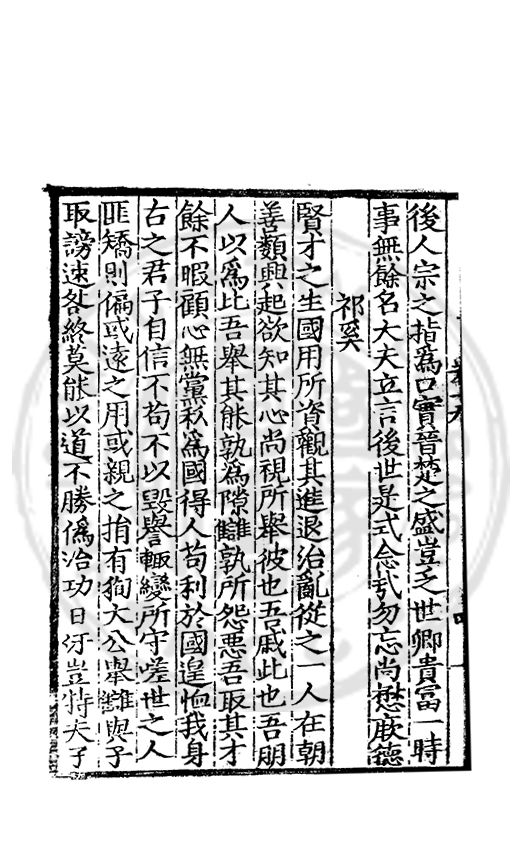 後人宗之指為口實晉楚之盛豈乏世卿貴冨一時
事無餘名大夫立言後世是式念㢤勿忘尚懋厥德
祁奚
賢才之生國用所資觀其進退治亂從之一人在朝
善類興起欲知其心尚視所舉彼也吾戚此也吾朋
人以為此吾舉其能孰為隙讎孰所怨惡吾取其才
餘不暇顧心無黨私為國得人苟利於國遑恤我身
古之君子自信不苟不以毀譽輙變所守嗟世之人
匪矯則偏或遠之用或親之捐有狥大公舉讎與子
取謗速咎終莫能以道不勝偽治功日
豈特夫子